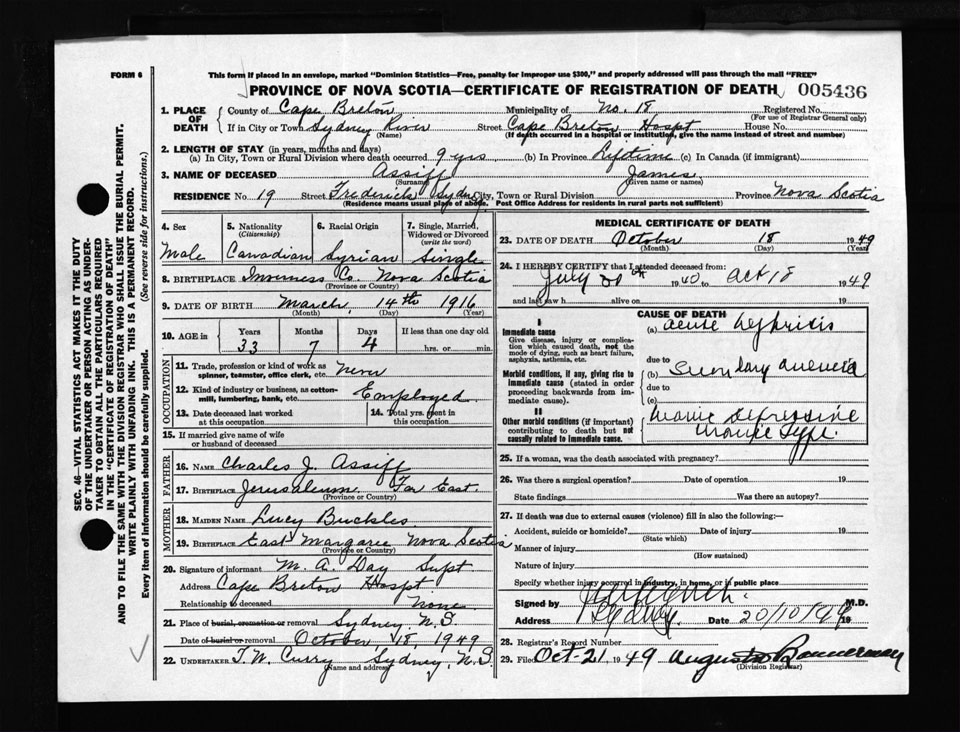 FORM 6
This form if placed in an envelope, marked "Dominion Statistics—Free, penalty for improper use $300," and properly addressed will pass through the mail "FREE"
PROVINCE OF NOVA SCOTIA—CERTIFICATE OF REGISTRATION OF DEATH 005436
1. PLACE OF DEATH
County of Cape Breton Municipality of No. 18 Registered No.
(For use of Registrar General only)
If in City or Town Sydney River Street Cape Breton Hospt House No.
(Name) (If death occurred in a hospital or institution, give the name instead of street and number)
2. LENGTH OF STAY (in years, months and days)
(a) In City, Town or Rural Division where death occurred 9 yrs (b) In Province Lifetime (c) In Canada (if immigrant)
3. NAME OF DECEASED Assiff James
(Surname) (Given name or names)
RESIDENCE No. 19 Street Frederick Sydney City, Town or Rural Division Province Nova Scotia
(Residence means usual place of abode. Post Office Address for residents in rural parts not sufficient)
4. Sex
Male
5. Nationality
(Citizenship)
Canadian
6. Racial Origin
Syrian
7. Single, Married, Widowed or Divorced
(write the word)
Single
8. BIRTHPLACE Inverness Co. Nova Scotia
(Province or Country)
9. DATE OF BIRTH March 14th 1916
(Month) (Day) (Year)
10. AGE in Years Months Days If less than one day old
33 7 4 hrs. or min.
OCCUPATION
11. Trade, profession or kind of work as spinner, teamster, office clerk, etc. Never
12. Kind of industry or business, as cotton-mill, lumbering, bank, etc. Employed
13. Date deceased last worked at this occupation
14. Total yrs. spent in this occupation
15. If married give name of wife or husband of deceased
FATHER
16. NAME Charles J. Assiff
17. BIRTHPLACE Jerusalem Far East
(Province or Country)
MOTHER
18. MAIDEN NAME Lucy Buckles
19. BIRTHPLACE East Margaree Nova Scotia
(Province or Country)
20. Signature of informant M. A. Day Supt
Address Cape Breton Hospt
Relationship to deceased None
21. Place of burial, cremation or removal Sydney N.S.
Date of burial or removal October 18 1949
22. UNDERTAKER T. W. Curry Sydney N.S.
(Name and address)
MEDICAL CERTIFICATE OF DEATH
23. DATE OF DEATH October 18 1949
(Month) (Day) (Year)
24. I HEREBY CERTIFY that I attended deceased from:
July 1940 to Oct 18 1949
and last saw h alive on 19
CAUSE OF DEATH
I
Immediate cause
Give disease, injury or complication which caused death, not the mode of dying, such as heart failure, asphyxia, asthenia, etc.
(a) acute Nephritis
due to
Morbid conditions, if any, giving rise to immediate cause (stated in order proceeding backwards from immediate cause).
(b) Secondary anemia
due to
(c)
II
Other morbid conditions (if important) contributing to death but not causally related to immediate cause.
Manic depressive
manic type.
25. If a woman, was the death associated with pregnancy?
26. Was there a surgical operation? Date of operation 19
State findings Was there an autopsy?
27. If death was due to external causes (violence) fill in also the following:—
Accident, suicide or homicide? Date of injury 19
(State which)
Manner of injury
(How sustained)
Nature of injury
Specify whether injury occurred in industry, in home, or in public place
Signed by M.D.
Address Sydney Date 20/10/49 19
28. Registrar's Record Number
29. Filed Oct-21 1949 Bannerman
(Division Registrar)
SEC. 46—VITAL STATISTICS ACT MAKES IT THE DUTY
OF THE UNDERTAKER OR PERSON ACTING AS UNDER-
TAKER TO OBTAIN ALL THE PARTICULARS REQUIRED
IN THE "CERTIFICATE OF REGISTRATION OF DEATH"
AND TO FILE THE SAME WITH THE DIVISION REGISTRAR WHO SHALL ISSUE THE BURIAL PERMIT.
WRITE PLAINLY WITH UNFADING INK. THIS IS A PERMANENT RECORD.
Every item of information should be carefully supplied. (See reverse side for instructions.)